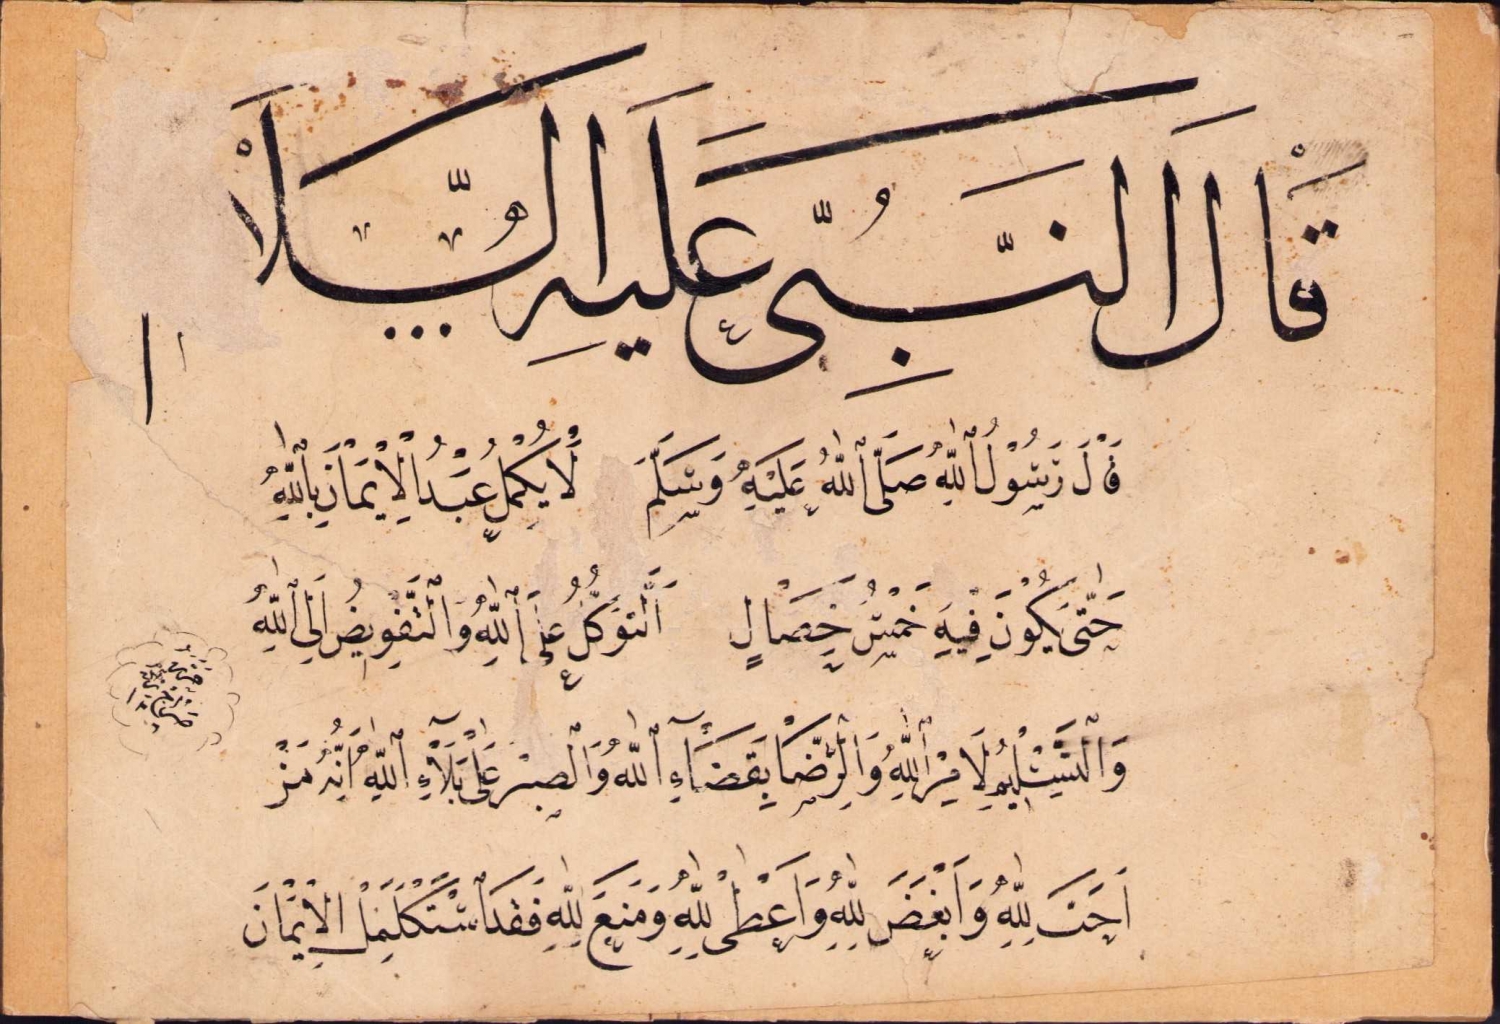 قَالَ النَّبِيُّ عَلَيْهِ السَّلَا
قَالَ رَسُولُ اللّٰهِ صَلَّى اللّٰهُ عَلَيْهِ وَسَلَّمَ لَا يَكْمُلُ عَبْدُ الْاِيمَانِ بِاللّٰهِ
حَتّٰى يَكُونَ فِيهِ خَمْسُ خِصَالٍ اَلتَّوَكُّلُ عَلَى اللّٰهِ وَالتَّفْوِيضُ اِلَى اللّٰهِ
وَالتَّسْلِيمُ لِاَمْرِ اللّٰهِ وَالرِّضَا بِقَضَاۤءِ اللّٰهِ وَالصَّبْرُ عَلٰى بَلَاۤءِ اللّٰهِ اَنَّهُ مَنْ
اَحَبَّ لِلّٰهِ وَاَبْغَضَ لِلّٰهِ وَاَعْطٰى لِلّٰهِ وَمَنَعَ لِلّٰهِ فَقَدِ اسْتَكْمَلَ الْاِيْمَانَ